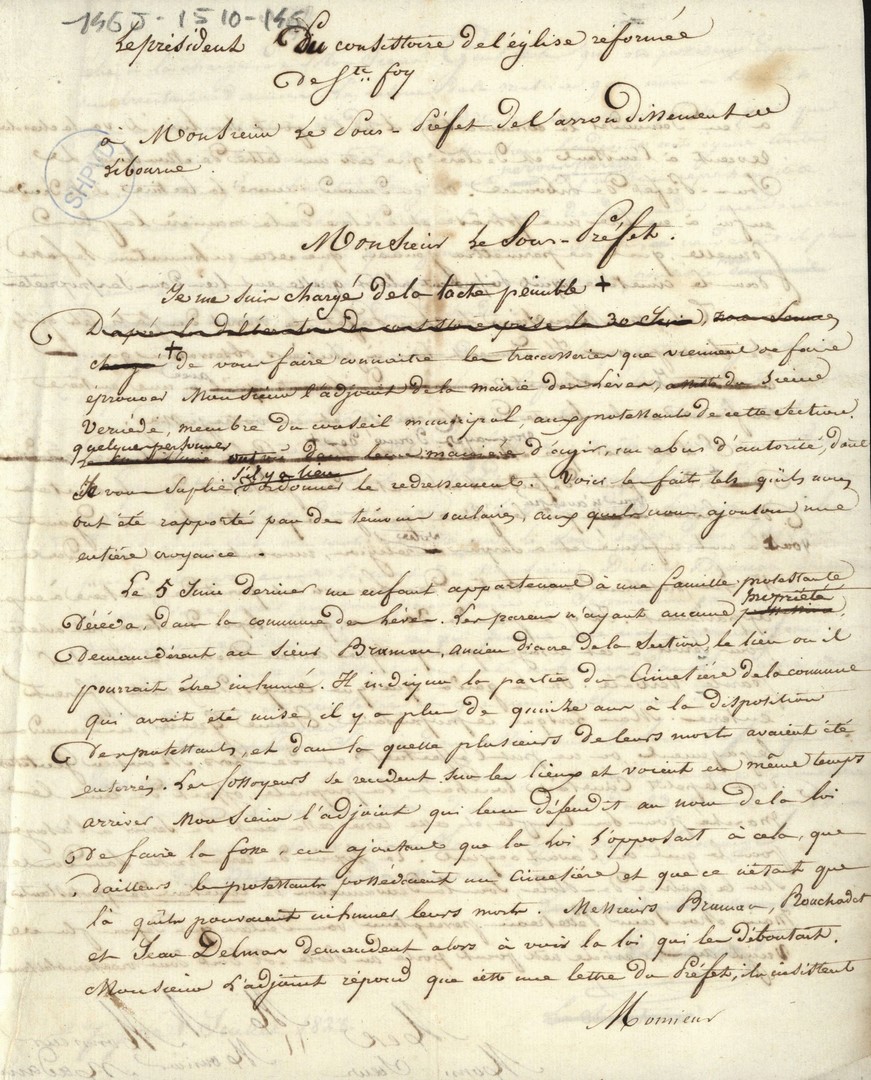 Le président Du consistoire de l'église réformée
De Ste foy
à Monsieur Le Sous-Préfet de l'arrondissement de
Libourne.
SHPVD
Monsieur Le Sous-Préfet.
Je me suis chargé de la tache pénible +
D'après la délibération du consistoire prise le 30 Juin,
chargé + de vous faire connaitre les tracasseries que viennent de faire
éprouver Monsieur l'adjoint de la mairie des Lèves, sieur
Vernède, membre du conseil municipal, aux protestants de cette section.
quelques personnes
d'agir, un abus d'autorité, dont
s'il y a lieu
Je vous suplie d'ordonner le redressement. Voici le fait tels qu'ils nous
ont été rapporté par des témoins oculaires, aux quels nous ajoutons une
entière croyance.
Le 5 Juin dernier un enfant appartenant à une famille protestante
propriété
Décéda, dans la commune des Lèves. Les parens n'ayant aucune
demandèrent au sieur Bruman, ancien diacre de la section le lieu où il
pourrait être inhumé. Il indiqua la partie du Cimetière de la commune
qui avait été mise, il y a plus de quinze ans à la disposition
des protestants, et dans la quelle plusieurs de leurs morts avaient été
enterrés. Les fossoyeurs se rendent sur les lieux et voient en même temps
arriver Monsieur l'adjoint qui leur défendit au nom de la loi
De faire la fosse, en ajoutant que la loi s'opposait à cela, que
dailleurs les protestants possédaient un Cimetière et que ce n'était que
là qu'ils pouvaient inhumer leurs morts. Messieurs Bruman, Rouchadet
et Jean Delmas demandent alors à voir la loi qui les déboutait.
Monsieur L'adjoint répond que cette une lettre du Préfet, ils insistent
Monsieur